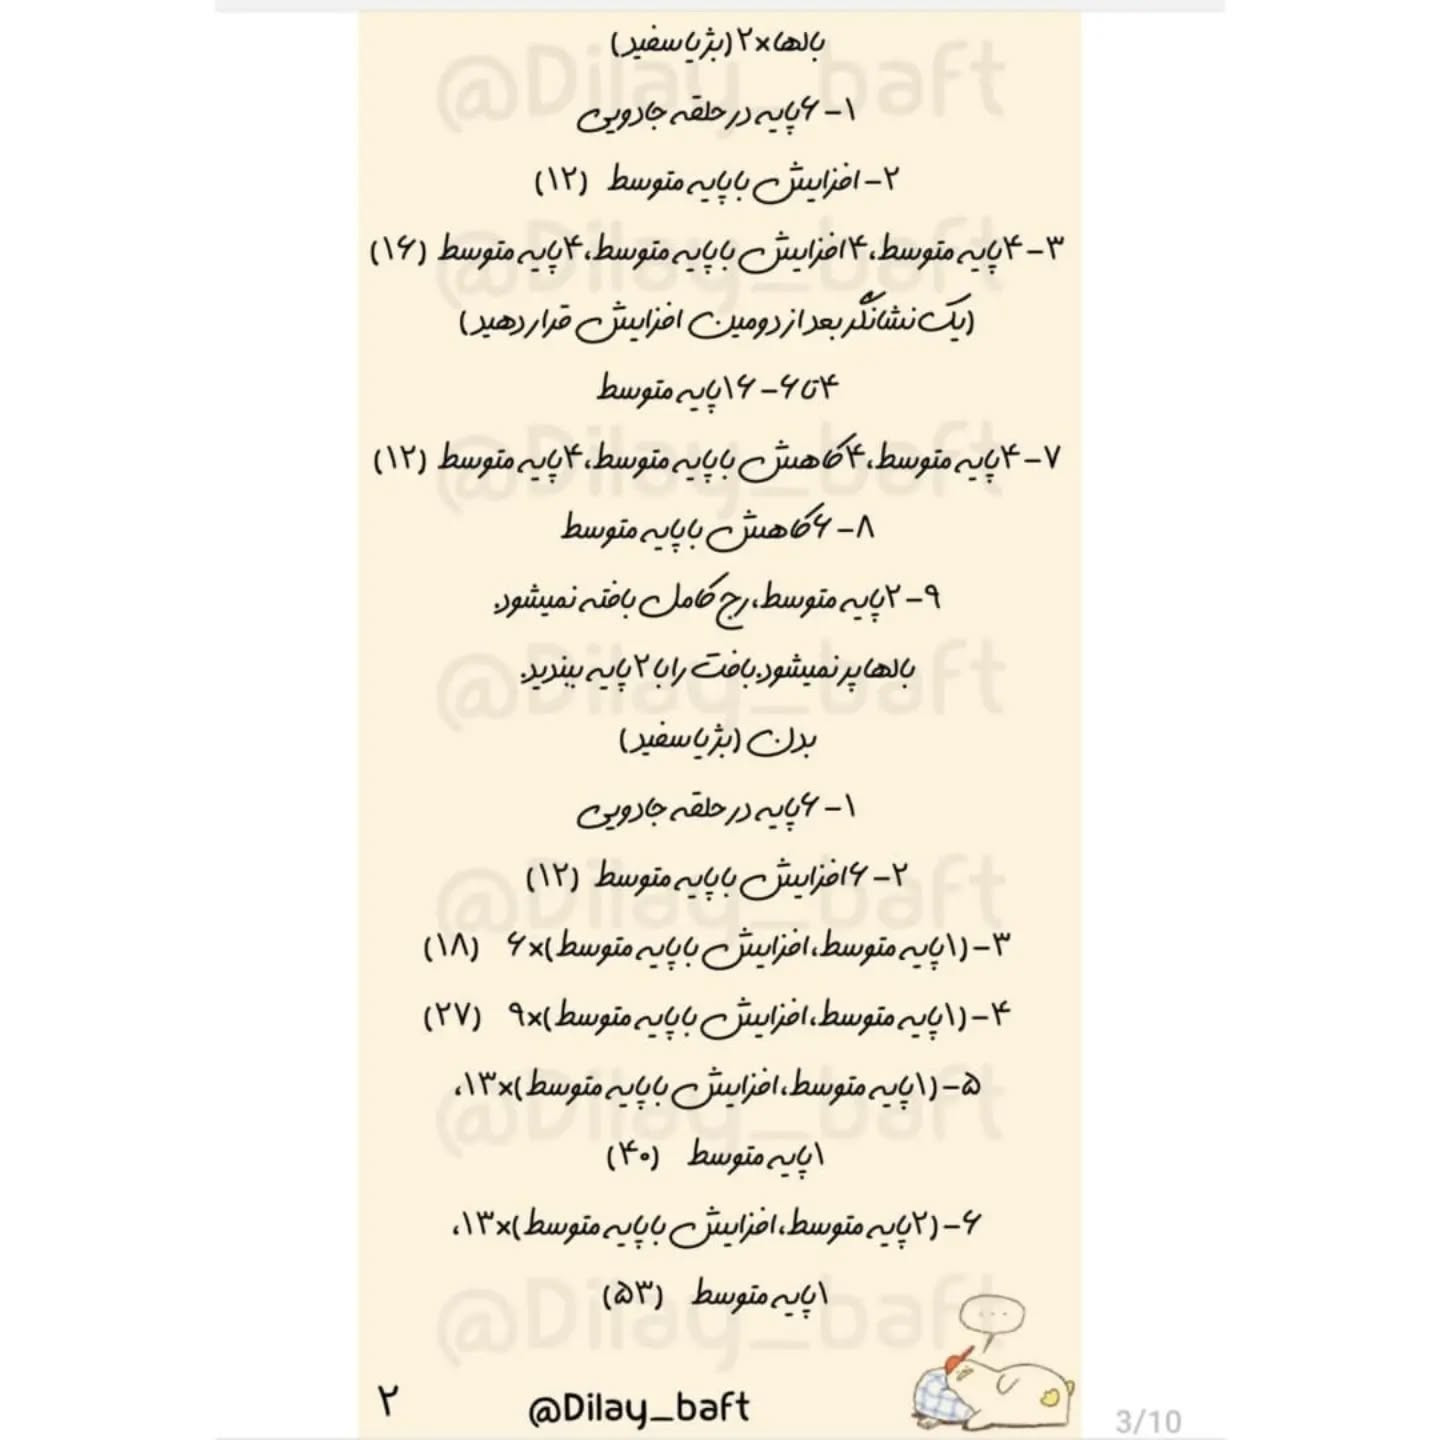 بالها×۲(بژ یا سفید)
۱-۶پایه در حلقه جادویی
۲-افزایش با پایه متوسط (۱۲)
۳-۴پایه متوسط،۴افزایش با پایه متوسط،۴پایه متوسط (۱۶)
(یک نشانگر بعد از دومین افزایش قرار دهید)
۴تا۶-۱۶پایه متوسط
۷-۴پایه متوسط،۴کاهش با پایه متوسط،۴پایه متوسط (۱۲)
۸-۶کاهش با پایه متوسط
۹-۲پایه متوسط،رج کامل بافته نمیشود.
بالها پر نمیشود.بافت را با ۲ پایه ببندید.
بدن (بژ یا سفید)
۱-۶پایه در حلقه جادویی
۲-۶افزایش با پایه متوسط (۱۲)
۳-(۱پایه متوسط،افزایش با پایه متوسط)×۶ (۱۸)
۴-(۱پایه متوسط،افزایش با پایه متوسط)×۹ (۲۷)
۵-(۱پایه متوسط،افزایش با پایه متوسط)×۱۳،
۱پایه متوسط (۴۰)
۶-(۲پایه متوسط،افزایش با پایه متوسط)×۱۳،
۱پایه متوسط (۵۳)
...
۲
@Dilay_baft
3/10
@Dilay_baft
@Dilay_baft
@Dilay_baft
@Dilay_baft
@Dilay_baft
@Dilay_baft
@Dilay_baft